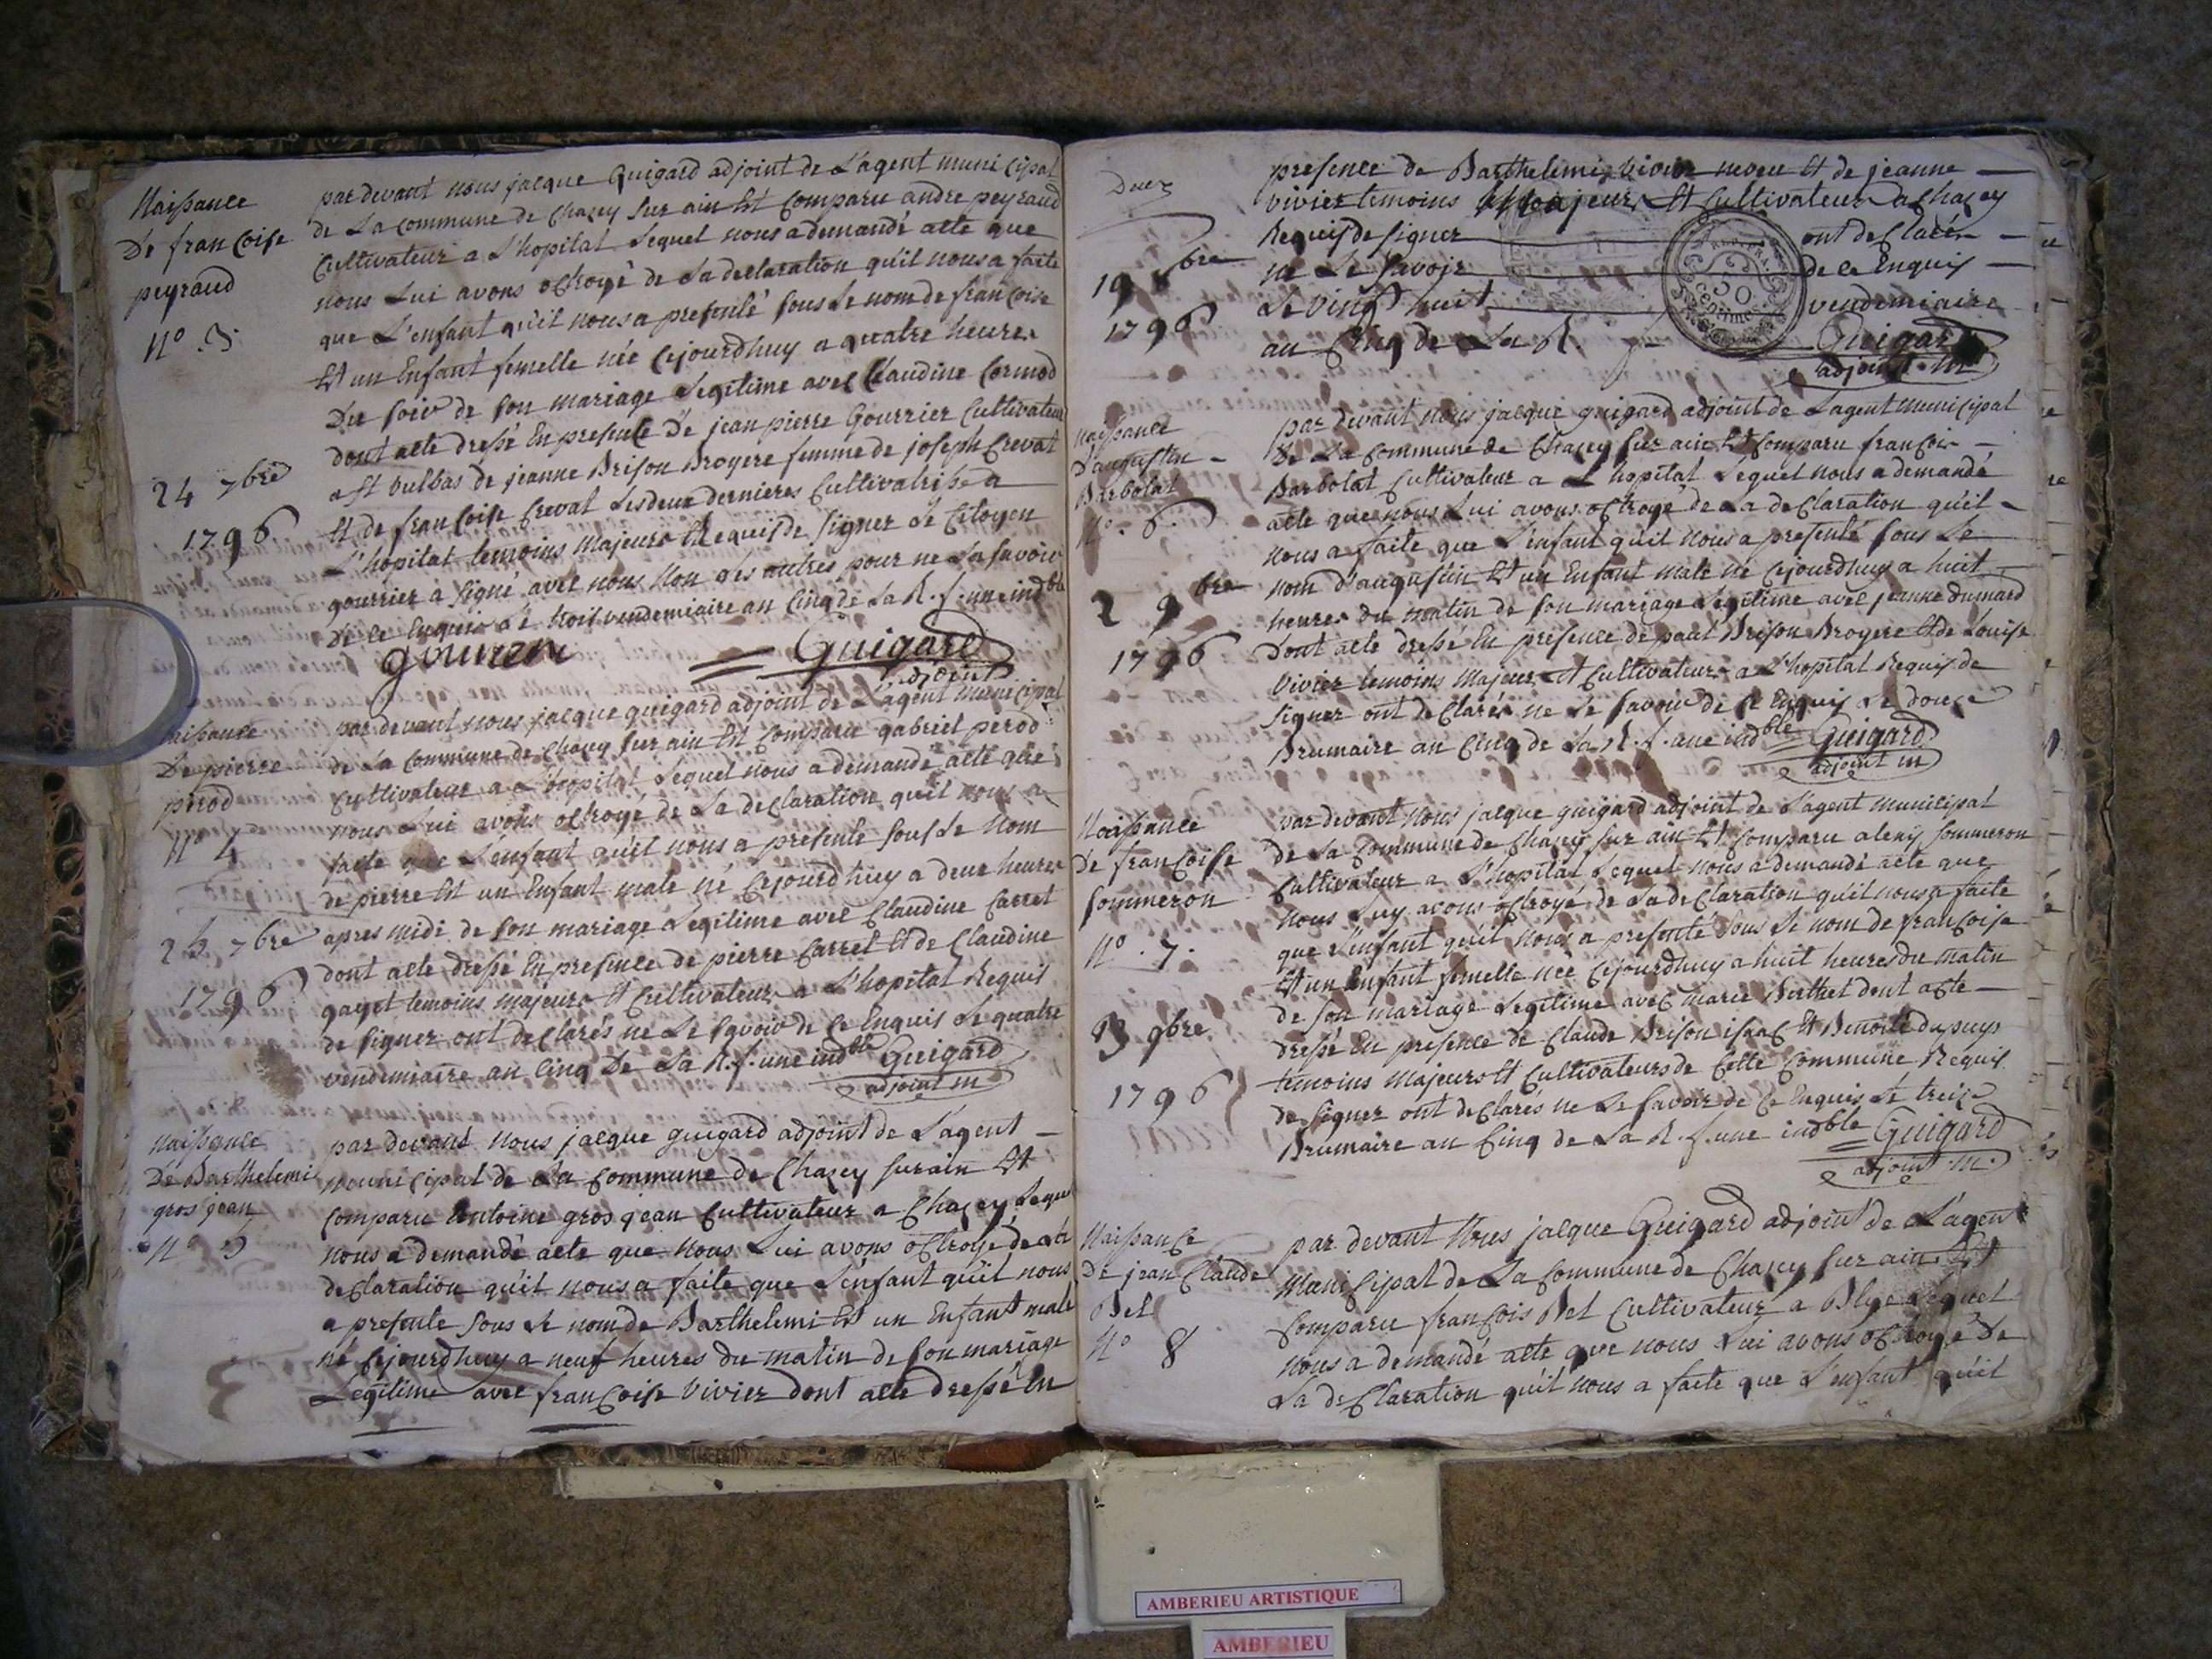 Naissance
De francoise
peyraud
N° 3
24 7bre
1796
par devant nous jacque Guigard adjoint de L'agent municipal
de La commune de Chazey sur ain Est comparu andre peyraud
Cultivateur a L'hopital Lequel nous a demandé acte que
nous Lui avons octroyé de La declaration qu'il nous a faite
que L'enfant qu'il nous a presenté sous Le nom de francoise
Est un Enfant femelle née Cejourdhuy a quatre heures
Du soir de son mariage Legitime avec Claudine Cormod
dont acte dressé En presence De jean pierre Gourrier Cultivateur
a St vulbas de jeanne Brison Brogere femme de joseph Crevat
Et de francoise Crevat Les deux dernieres Cultivatrise a
L'hopital temoins majeurs Requis de signer Le Citoyen
gourrier a signé avec nous Non Les autres pour ne La savoir
De ce Enquis Le trois vendemiaire an Cinq de La R. f. une indble
Guigard
adjoint
Naissance
De pierre
perod
N° 4
25 7bre
1796
par devant nous jacque guigard adjoint de L'agent municipal
de La Commune de Chazey sur ain Est Comparu gabriel perod
Cultivateur a L'hopital Lequel nous a demandé acte que
nous Lui avons octroyé de La declaration qu'il nous a
faite que L'enfant qu'il nous a presenté sous Le Nom
de pierre Est un Enfant male né Cejourdhuy a deux heures
apres midi de son mariage Legitime avec Claudine Carret
dont acte dressé En presence de pierre Carret Et de Claudine
gayet temoins majeurs Et Cultivateurs a L'hopital Requis
de signer ont declarés ne Le savoir de Ce Enquis Le quatre
vendemiaire an Cinq De La R. f. une indble Guigard
adjoint m
Naissance
De Barthelemi
gros jean
N° 5
par devant nous jacque guigard adjoint de L'agent
municipal de La Commune de Chazey sur ain Est
Comparu Antoine gros jean Cultivateur a Chazey Lequel
nous a demandé acte que nous Lui avons octroyé de La
declaration qu'il nous a faite que L'enfant qu'il nous
a presenté sous Le nom de Barthelemi Est un Enfant male
né Cejourdhuy a neuf heures du matin de son mariage
Legitime avec francoise Vivier dont acte dressé En
19 8bre
1796
presence de Barthelemi Vivier neveu Et de jeanne
vivier temoins Majeurs Et Cultivateurs a Chazey
Requis de signer ont declarés
ne Le savoir de ce Enquis
Le vingt huit vendemiaire
an Cinq de La R. f. Guigard
adjoint m
50
centimes
Naissance
D'augustin
Barbolat
N° 6
2 9bre
1796
par devant nous jacque guigard adjoint de L'agent municipal
de La Commune de Chazey sur ain Est Comparu francois
Barbolat Cultivateur a L'hopital Lequel nous a demandé
acte que nous Lui avons octroyé de La declaration qu'il
nous a faite que L'enfant qu'il nous a presenté sous Le
nom d'augustin Est un Enfant male né Cejourdhuy a huit
heures du matin de son mariage Legitime avec jeanne Dumard
Dont acte dressé En presence de paul Brison Brogere Et de Louise
Vivier temoins Majeurs Et Cultivateurs a L'hopital Requis de
signer ont declarés ne Le savoir de ce Enquis Le douze
Brumaire an Cinq de La R. f. une indble Guigard
adjoint m
Naissance
De francoise
Sommeron
N° 7.
3 9bre
1796
par devant nous jacque guigard adjoint de L'agent municipal
de La Commune de Chazey sur ain Est Comparu alexis Sommeron
Cultivateur a L'hopital Lequel nous a demandé acte que
nous Luy avons octroyé de La declaration qu'il nous a faite
que L'enfant qu'il nous a presenté sous Le nom de francoise
Est un Enfant femelle née Cejourdhuy a huit heures du matin
de son mariage Legitime avec marie Berthet dont acte
dressé En presence de Claude Brison isaac Et Benoite dupuys
temoins Majeurs Et Cultivateurs de Cette Commune Requis
de signer ont declarés ne Le savoir de Ce Enquis Le treize
Brumaire an Cinq de La R. f. une indble Guigard
adjoint m.
Naissance
De jean Claude
Bel
N° 8
par devant Nous jacque Guigard adjoint de L'agent
Municipal de La Commune de Chazey sur ain Est
Comparu francois Bel Cultivateur a Blye Lequel
nous a demandé acte que nous Lui avons octroyé de
La declaration qu'il nous a faite que L'enfant qu'il
AMBERIEU ARTISTIQUE
AMBERIEU